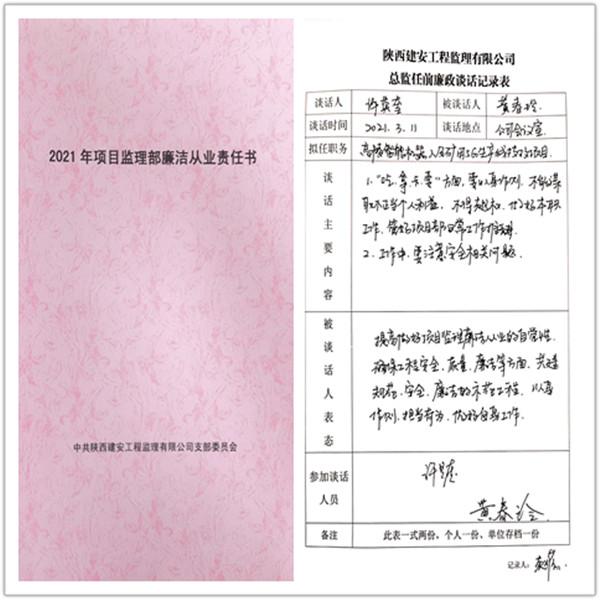 2021 年项目监理部廉洁从业责任书
中共陕西建安工程监理有限公司支部委员会
陕西建安工程监理有限公司
总监任前廉政谈话记录表
谈话人 许奎 被谈话人 黄春玲
谈话时间 2021.3.11 谈话地点 公司会议室
拟任职务
谈话主要内容
1."吃、拿、卡、要"方面,要以身作则,不能谋
取不正当个人利益,不得越权,做好本职
工作,管好项目部日常工作
2.工作中,要注意安全相关问题.
被谈话人表态
提高做好项目监理廉洁从业的自觉性,
确保工程安全、质量、廉洁等方面,共建
规范、安全、廉洁的示范工程,以身
作则,担当有为,做好自身工作.
参加谈话人员
黄春玲
备注 此表一式两份、个人一份、单位存档一份
记录人: